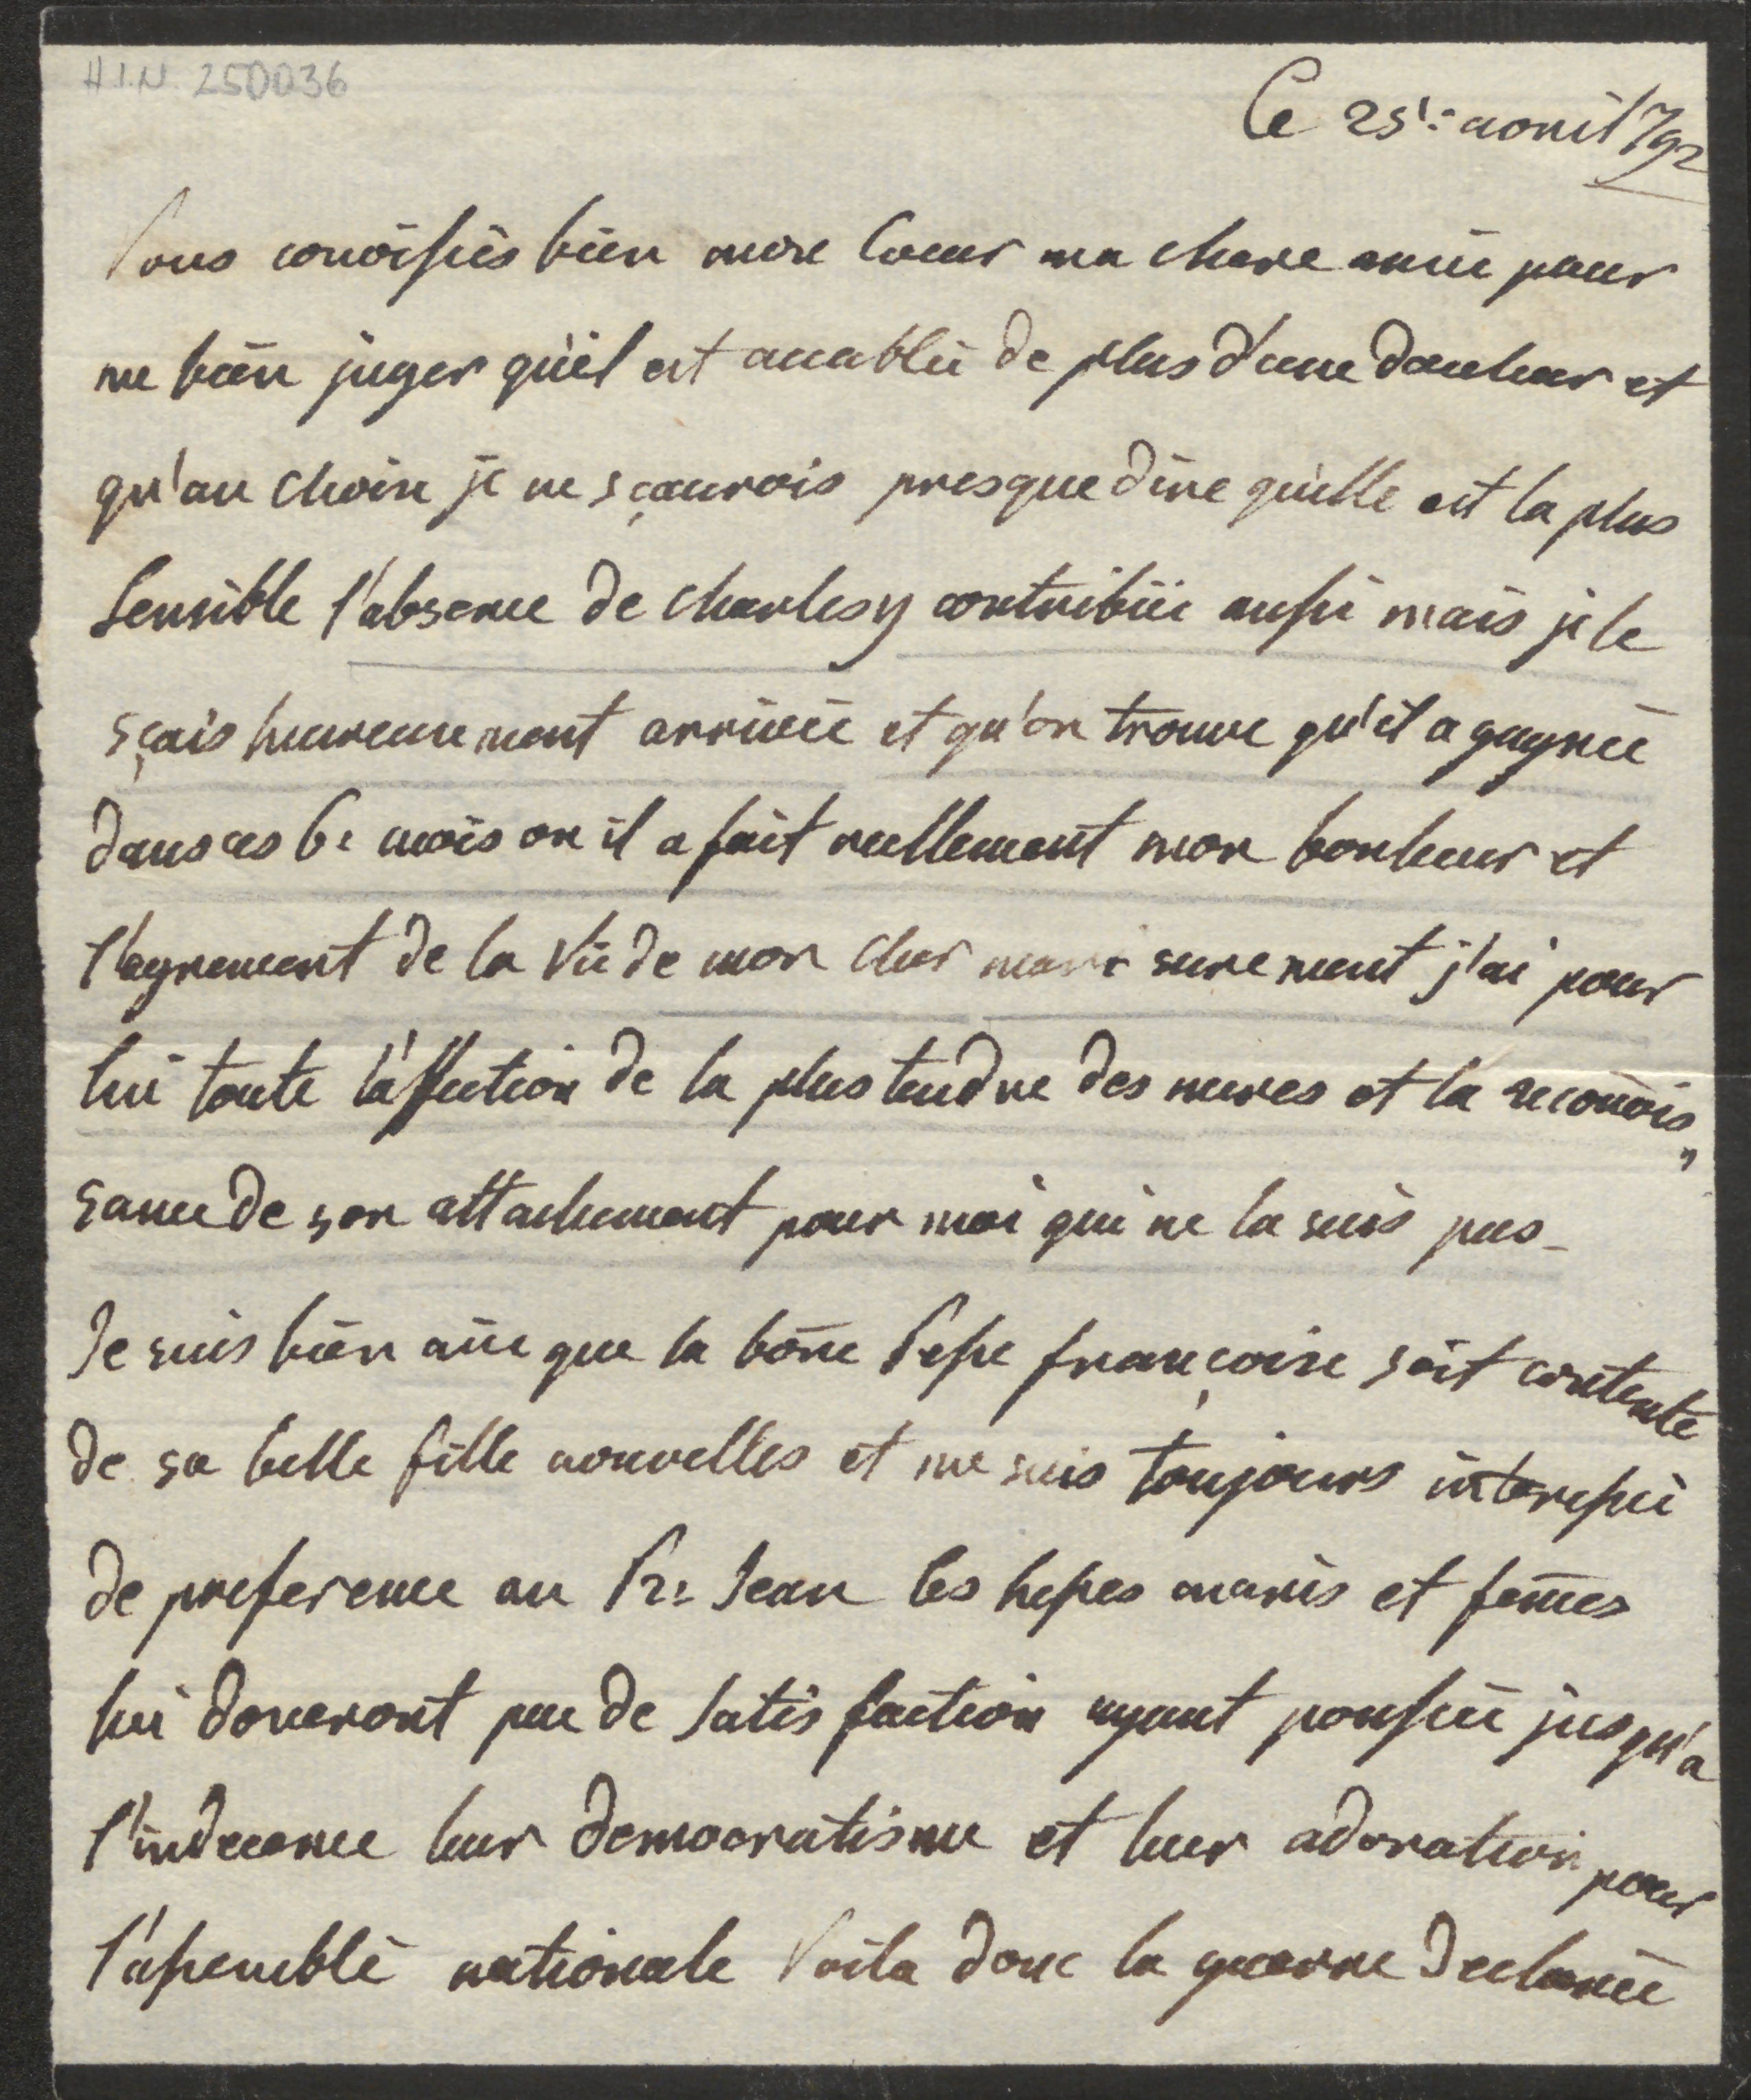 H.I.N. 250036
Ce 25: avril 792
Vous conoissiès bien mon Coeur ma chere amie pour
me bien juger qu'il est accablée de plus d'une douleur et
qu'au choix je ne sçaurois presque dire quelle est la plus
Sensible l'absence de charles y contribüe aussi mais je le
sçais heureusement arrivée et qu'on trouve qu'il a gagnée
dans ces 6: mois ou il a fait reellement mon bonheur et
l'agrement de la vie de mon cher mari surement j'ai pour
lui toute l'affection de la plus tendre des meres et la reconois„
sance de son attachement pour moi qui ne la suis pas_
Je suis bien aise que la bone Pesse françoise soit contente
de sa belle fille nouvelles et me suis toujours interessée
de preference au Pr: Jean les hesses maris et femes
lui doneront peu de satisfaction ayant poussée jusqu'a
l'indecence leur democratisme et leur adoration pour
l'assemblé nationale Voila donc la guerre declarée